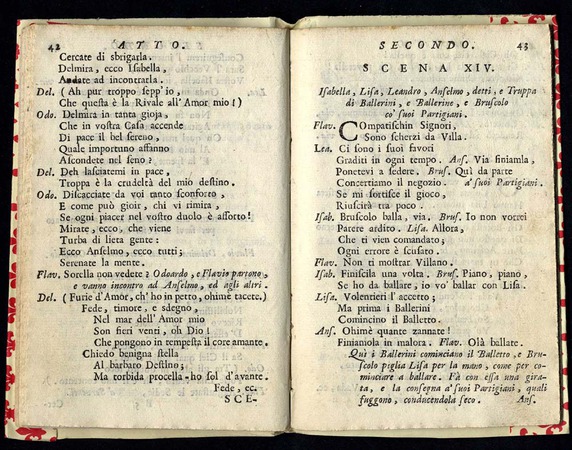 42 ATTO.
Cercate di sbrigarla.
Delmira, ecco Isabella,
Andate ad incontrarla.
Del. ( Ah pur troppo sepp'io,
Che questa è la Rivale all' Amor mio! )
Odo. Delmira in tanta gioja,
Che in vostra Casa accende
Di pace il bel sereno,
Quale importuno affanno
Ascondete nel seno?
Del. Deh lasciatemi in pace,
Troppa è la crudeltà del mio destino.
Odo. Discacciate da voi tanto sconforto,
E come può gioir, chi vi rimira,
Se ogni piacer nel vostro duolo è assorto!
Mirate, ecco, che viene
Turba di liera gente:
Ecco Anselmo, ecco tutti;
Serenate la mente.
Flav. Sorella non vedete? Odoardo, e Flavio partono,
e vanno incontro ad Anselmo, ed agli altri.
Del. ( Furie d'Amor, ch' ho in petto, ohimè tacete.)
Fede, timore, e sdegno,
Nel mar dell'Amor mio
Son fieri venti, oh Dio!
Che pongono in tempesta il core amante.
Chiedo benigna stella
Al barbaro Destino;
Ma torbida procella ho sol d'avante.
Fede, ec.
SCE-
SECONDO. 43
SCENA XIV.
Isabella, Lisa, Leandro, Anselmo, detti, e Truppa
di Ballerini, e Ballerine, e Bruscolo
co' suoi Partigiani.
Flav. Compatischin Signori,
Sono scherzi da Villa.
Lea. Ci sono i suoi favori
Graditi in ogni tempo. Ans. Via finiamla,
Ponetevi a sedere. Brus. Quì da parte
Concertiamo il negozio. a' suoi Partigiani.
Se mi sortisce il gioco,
Riuscirà tra poco.
Isab. Bruscolo balla, via. Brus. Io non vorrei
Parere ardito. Lisa. Allora,
Che ti vien comandato;
Ogni errore è scusato.
Flav. Non ti mostrar Villano.
Isab. Finiscila una volta. Brus. Piano, piano,
Se ho da ballare, io vo' ballar con Lisa.
Lisa. Volentieri l'accetto;
Ma prima i Ballerini
Comincino il Balletto.
Ans. Ohimè quante zannate!
Finiamola in malora. Flav. Olà ballate.
Quì i Ballerini cominciano il Balletto, e Bru-
scolo piglia Lisa per la mano, come per co-
minciare a ballare. Fà con essa una gira-
ta, e la consegna a' suoi Partigiani, quali
fuggono, conducendola seco. Ans.